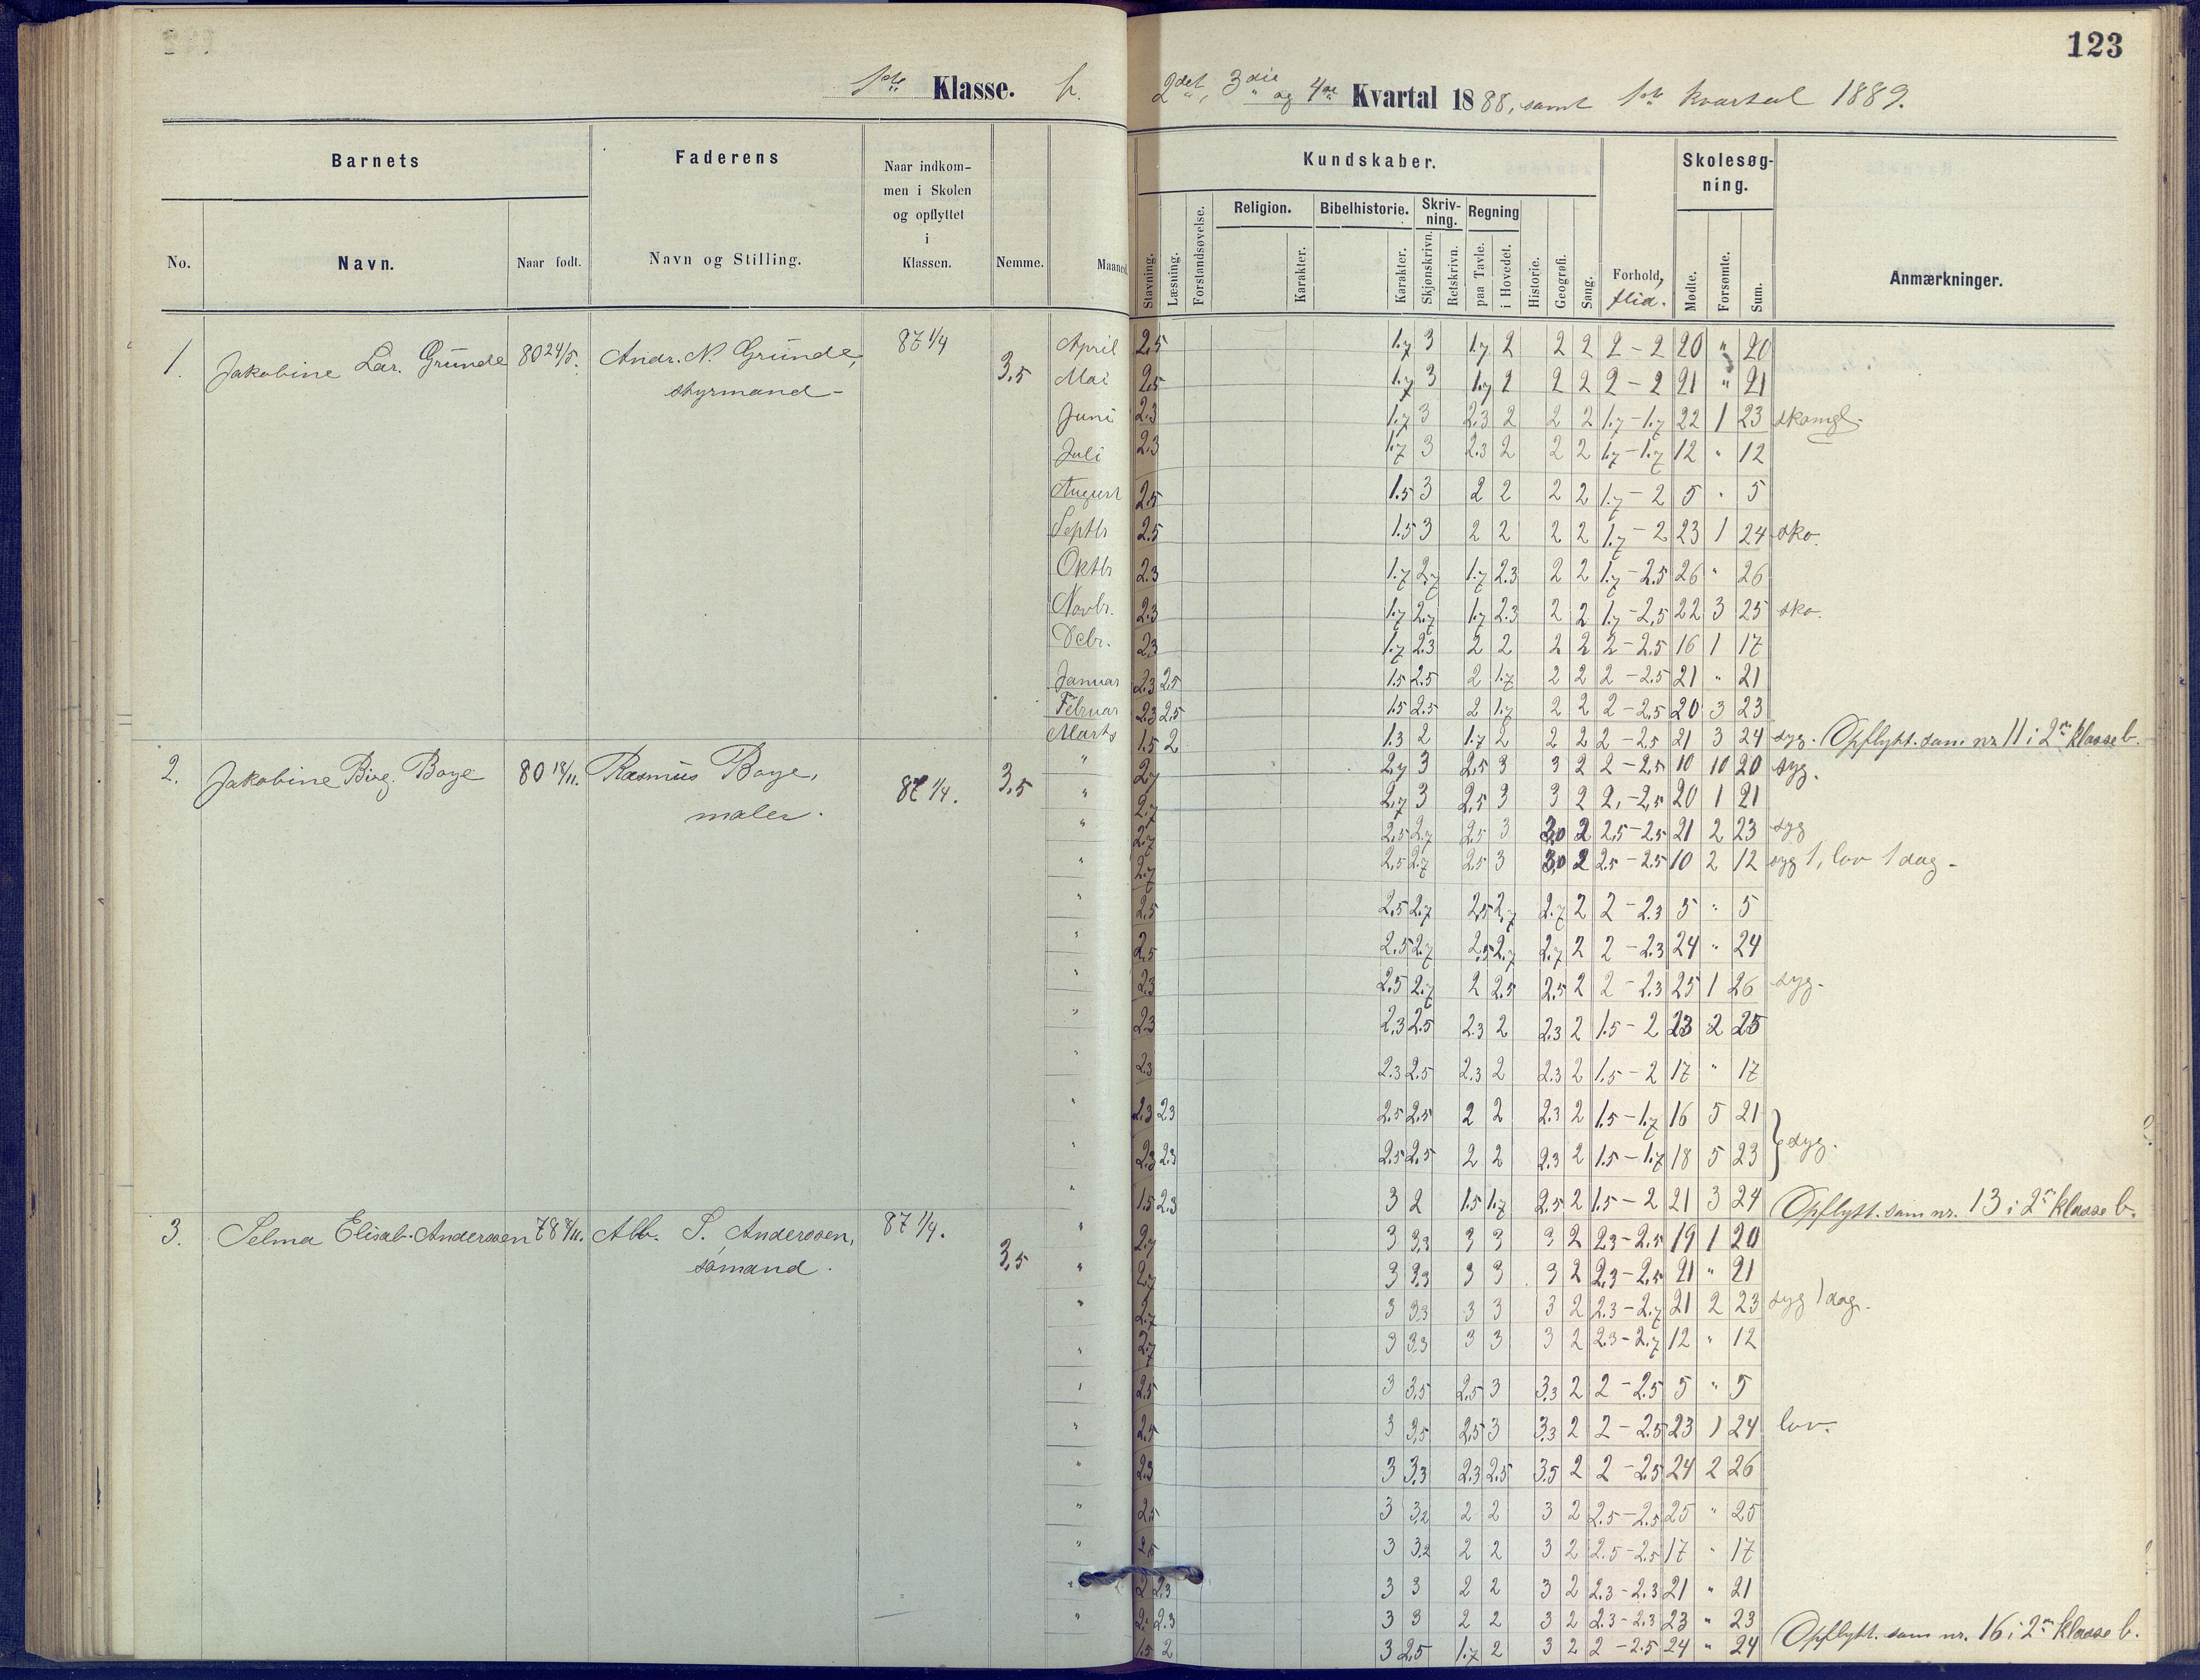 123
1ste Klasse. b. 2det, 3die og 4de Kvartal 1888, samt 1ste kvartal 1889.
Barnets
Faderens
Naar indkom-
men i Skolen
og opflyttet
i
Klassen.
Nemme.
Maaned.
No.
Navn.
Naar født.
Navn og Stilling.
Kundskaber.
Stavning.
Læsning.
Forstandsøvelse.
Religion.
Karakter.
Bibelhistorie.
Karakter.
Skriv-
ning.
Skjønskrivn.
Retskrivn.
Regning
paa Tavle.
i Hovedet.
Historie.
Geografi.
Sang.
Forhold,
flid.
Skolesøg-
ning.
Mødte.
Forsømte.
Sum.
Anmærkninger.
1. Jakobine Lar. Gründe 80 24/5. Andr. N. Gründe, 87 1/4 3,5
styrmand
April 2,5 1.7 3 1.7 2 2 2 2 - 2 20 " 20
Mai 2,5 1.7 3 1.7 2 2 2 2 - 2 21 " 21
Juni 2.3 1.7 3 2.3 2 2 2 1.7 - 1.7 22 1 23 skomgl.
Juli 2.3 1.7 3 2.3 2 2 2 1.7 - 1.7 12 " 12
August 2.5 1.5 3 2 2 2 2 1.7 - 2 5 " 5
Septbr 2.5 1.5 3 2 2 2 2 1.7 - 2 23 1 24 sko.
Oktbr 2.3 1.7 2.7 1.7 2.3 2 2 1.7 - 2.5 26 " 26
Novbr. 2.3 1.7 2.7 1.7 2.3 2 2 1.7 - 2,5 22 3 25 sko.
Debr. 2.3 1.7 2.3 2 2 2 2 2 - 2.5 16 1 17
Januar 2.3 2.5 1.5 2.5 2 1.7 2 2 2 - 2.5 21 " 21
Februar 2.3 2.5 1.5 2.5 2 1.7 2 2 2 - 2.5 20 3 23
Marts 1.5 2 1.3 2 1.7 2 2 2 2 - 2.5 21 3 24 syg. Opflytt. som nr. 11 i 2n klasse b.
2. Jakobine Birg. Boye 80 18/11. Rasmus Boye, 87 1/4. 3,5
maler.
" 2.7 2.7 3 2.5 3 3 2 2 - 2.5 10 10 20 syg.
" 2.7 2.7 3 2.5 3 3 2 2 - 2.5 20 1 21
" 2.7 2.5 2.7 2.5 3 3,0 2 2.5 - 2.5 21 2 23 syg
" 2.7 2.5 2.7 2.5 3 3,0 2 2.5 - 2.5 10 2 12 syg 1, lov 1 dag -
" 2.5 2.5 2.7 2.5 2.7 2.7 2 2 - 2.3 5 " 5
" 2.5 2.5 2.7 2.5 2.7 2.7 2 2 - 2.3 24 " 24
" 2.3 2.5 2.7 2 2.5 2.5 2 2 - 2.3 25 1 26 syg.
" 2.3 2.3 2.5 2.3 2 2.3 2 1.5 - 2 23 2 25
" 2.3 2.3 2.5 2.3 2 2.3 2 1.5 - 2 17 " 17
" 2.3 2.3 2.5 2.5 2 2 2.3 2 1.5 - 1.7 16 5 21
" 2.3 2.3 2.5 2.5 2 2 2.3 2 1.5 - 1.7 18 5 23 } syg.
" 1.5 2.3 3 2 1.5 1.7 2.5 2 1.5 - 2 21 3 24 Opflytt. som nr. 13 i 2n klasse b.
3. Selma Elisab. Anderssen 78 8/11. Alb. S. Anderssen, 87 1/4. 3,5
sømand.
" 2.7 3 3,3 3 3 3 2 2.3 - 2.5 19 1 20
" 2.7 3 3.3 3 3 3 2 2.3 - 2.5 21 " 21
" 2.7 3 3.3 3 3 3 2 2.3 - 2.7 21 2 23 syg 1 dag.
" 2.7 3 3.3 3 3 3 2 2.3 - 2.7 12 " 12
" 2.5 3 3,5 2.5 3 3.3 2 2 - 2.5 5 " 5
" 2.5 3 3,5 2.5 3 3.3 2 2 - 2.5 23 1 24 lov.
" 2.3 3 3,3 2.3 2.5 3.5 2 2 - 2.5 24 2 26
" 2.5 3 3.2 2 2 3 2 2.5 - 2.5 25 " 25
" 2.5 3 3.2 2 2 3 2 2.5 - 2.5 17 " 17
" 2 2.3 3 3 2 2 3 2 2.3 - 2.3 21 " 21
" 2 2.3 3 3 2 2 3 2 2.3 - 2.3 23 " 23
1.5 2 3 2.5 1.7 2 3 2 2 - 2.5 24 " 24 Opflytt. som nr. 16 i 2n klasse b.